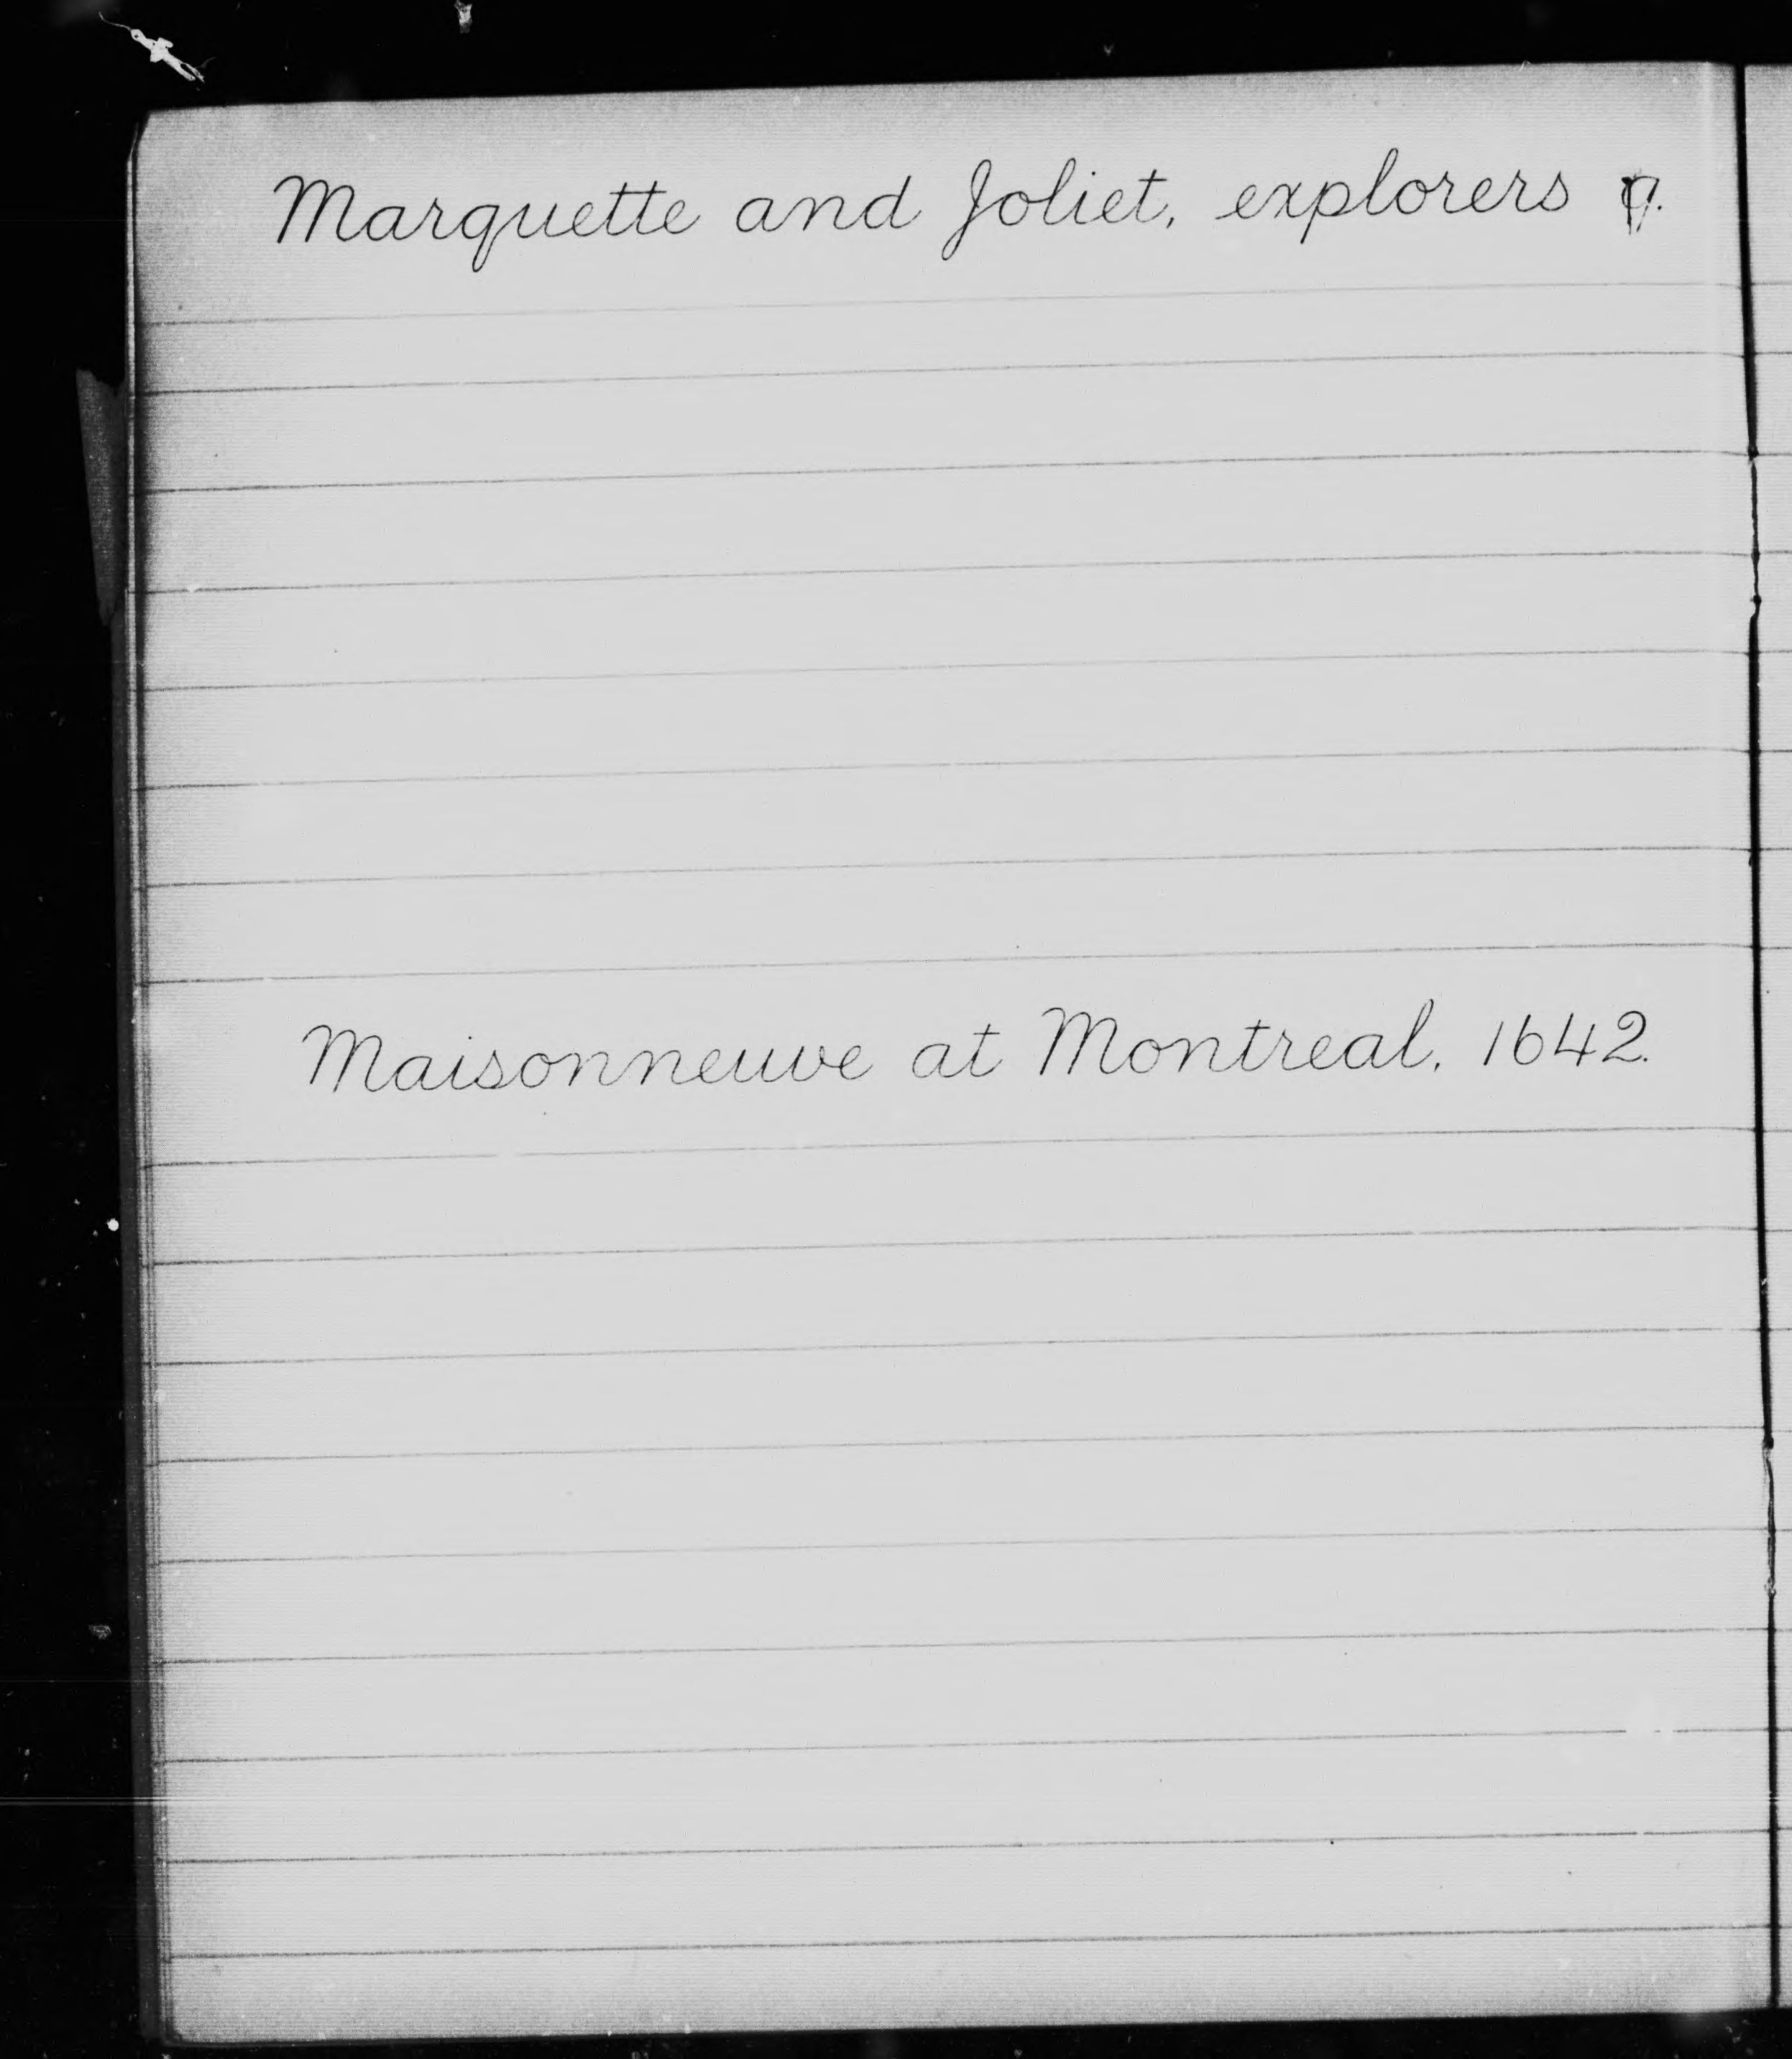 Marquette and Joliet, explorers
Maisonneuve at Montreal, 1642.